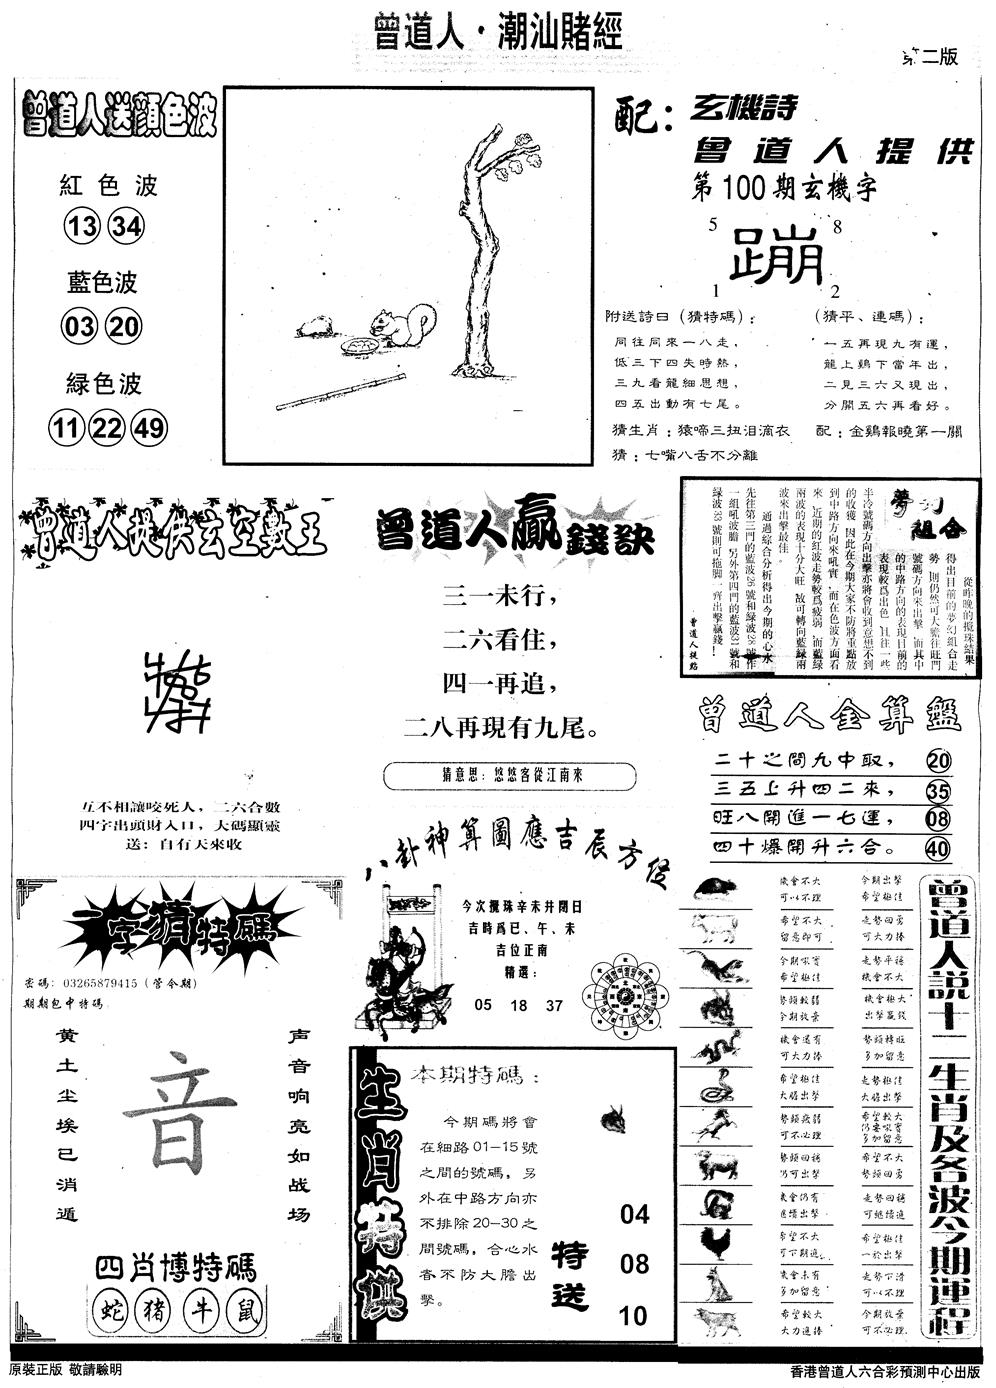 曾道人·潮汕賭經
第二版
曾道人送顔色波
紅色波
13 34
藍色波
03 20
緑色波
11 22 49
配：玄機詩
曾道人提供
第100期玄機字
5 8
蹦
1 2
附送詩曰（猜特碼）：
同往同來一八走，
低三下四失時熱，
三九看龍細思想，
四五出動有七尾。
（猜平、連碼）：
一五再現九有運，
龍上鷄下當年出，
二見三六又現出，
分開五六再看好。
猜生肖：猿啼三扭泪滴衣
配：金鷄報曉第一關
猜：七嘴八舌不分離
曾道人提供玄空數王
互不相讓咬死人，二六合數
四字出頭財入口，大碼顯靈
送：自有天來收
曾道人贏錢訣
三一未行，
二六看住，
四一再追，
二八再現有九尾。
猜意思：悠悠客從江南來
夢幻組合
從昨晚的攪珠結果
得出目前的夢幻組合走
勢，則仍然可大膽往旺門
號碼方向來出擊，而其中
的中路方向的表現目前的
表現較爲出色，且往一些
半冷號碼方向出擊亦將會收到意想不到
的收獲，因此在今期大家不防將重點放
到中路方向來吼實，而在色波方面看
來，近期的紅波走勢較爲疲弱，而藍緑
兩波的表現十分大旺，故可轉向藍緑兩
波來出擊最佳。
通過綜合分析得出今期的心水
先往第三門的藍波26號和緑波28號作
一組吼波膽，另外第四門的藍波31號和
緑波33號則可拖脚一齊出擊贏錢！
曾道人提點
曾道人金算盤
二十之間九中取， 20
三五上升四二來， 35
旺八開進一七運， 08
四十爆開升六合。 40
八卦神算圖應吉辰方位
今次攪珠辛未井閉日
吉時爲巳、午、未
吉位正南
精選：
05 18 37
一字猜特碼
密碼：03265879415（管今期）
期期包中特碼
黄土尘埃已消遁
音
声音响亮如战场
四肖博特碼
蛇 猪 牛 鼠
生肖特供
本期特碼：
今期碼將會
在細路01-15號
之間的號碼，另
外在中路方向亦
不排除20-30之
間號碼，合心水
者不防大膽出
擊。
特送
04
08
10
曾道人説十二生肖及各波今期運程
機會不大
可以不理
今期出擊
希望極佳
希望不大
留意即可
走勢回勇
可大力捧
今期吼實
希望極佳
走勢平穩
機會不大
勢頭較弱
今期放棄
機會極大
出擊贏錢
機會還有
可大力捧
勢頭轉旺
多加留意
希望極佳
大膽出擊
走勢極佳
大膽出擊
勢頭疲弱
可不必理
希望較大
仍要吼實
多加留意
勢頭回穩
仍可出擊
希望不大
勢頭回勇
機會仍有
進續出擊
走勢回穩
可繼續追
希望不大
可下期追
希望極佳
一於出擊
機會未有
多加留意
走勢下滑
可一不理
希望較大
大力追捧
今期放棄
可不必理
原裝正版 敬請驗明
香港曾道人六合彩預測中心出版